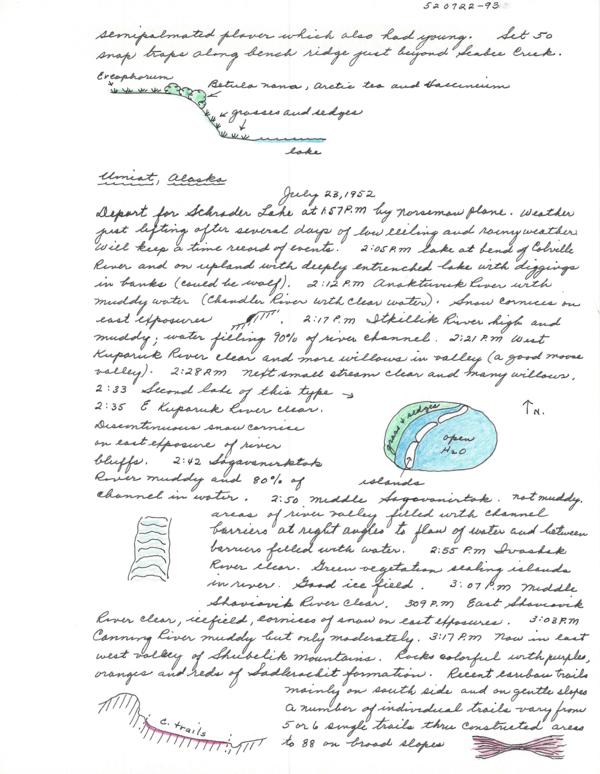 520722-93
semipalmated plover which also had young. Set 50
snap traps along bench ridge just beyond Seabee Creek.
Betula nana, Arctic tea and Vaccinium
grasses and sedges
lake
Umiat, Alaska
July 23, 1952
Depart for Schrader Lake at 1:57 P.M by Norseman plane. Weather
just lifting after several days of low ceiling and rainy weather
Will keep a time record of events. 2:05 P.M lake at bend of Colville
River and on upland with deeply entrenched lake with diggings
in banks (could be wolf). 2:12 P.M Anaktuvuk River with
muddy water (Chandler River with clear water). Snow cornices on
east exposures . 2:17 P.M Itkillik River high and
muddy; water filling 90% of river channel. 2:21 P.M West
Kuparuk River clear and more willows in valley (a good moose
valley). 2:28 P.M next small stream clear and many willows.
2:33 Second lake of this type →
2:35 E Kuparuk River clear.
Discontinuous snow cornice
on east exposure of river
bluffs. 2:42 Sagavanirktok
River muddy and 80% of
channel in water. 2:50 Middle Sagavanirtok. not muddy.
grass & sedges
open
H2O
↑ N.
islands
areas of river valley filled with channel
barriers at right angles to flow of water and between
barriers filled with water. 2:55 P.M Ivashak
River clear. Green vegetation sealing islands
in river. Good ice field. 3:07 P.M Middle
Shaviovik River clear. 309 P.M East Shaviovik
River clear, icefield, cornices of snow on east exposures. 3:08 P.M
Canning River muddy but only moderately. 3:17 P.M Now in east
west valley of Shubelik Mountains. Rocks colorful with purples,
oranges and reds of Sadlerochit formation. Recent caribou trails
mainly on south side and on gentle slopes
a number of individual trails vary from
5 or 6 single trails thru constricted areas
to 88 on broad slopes
C. trails